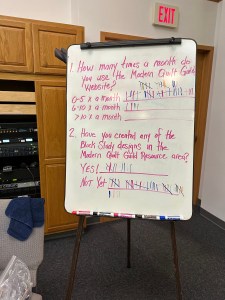 EXIT
1. How many times a month do
you use the Modern Quilt Guild
Website?
0-5 x a month
6-10 x a month
>10 x a month
2. Have you created any of the
Block Study designs in the
Modern Quilt Guild Resource area?
YES!
Not Yet